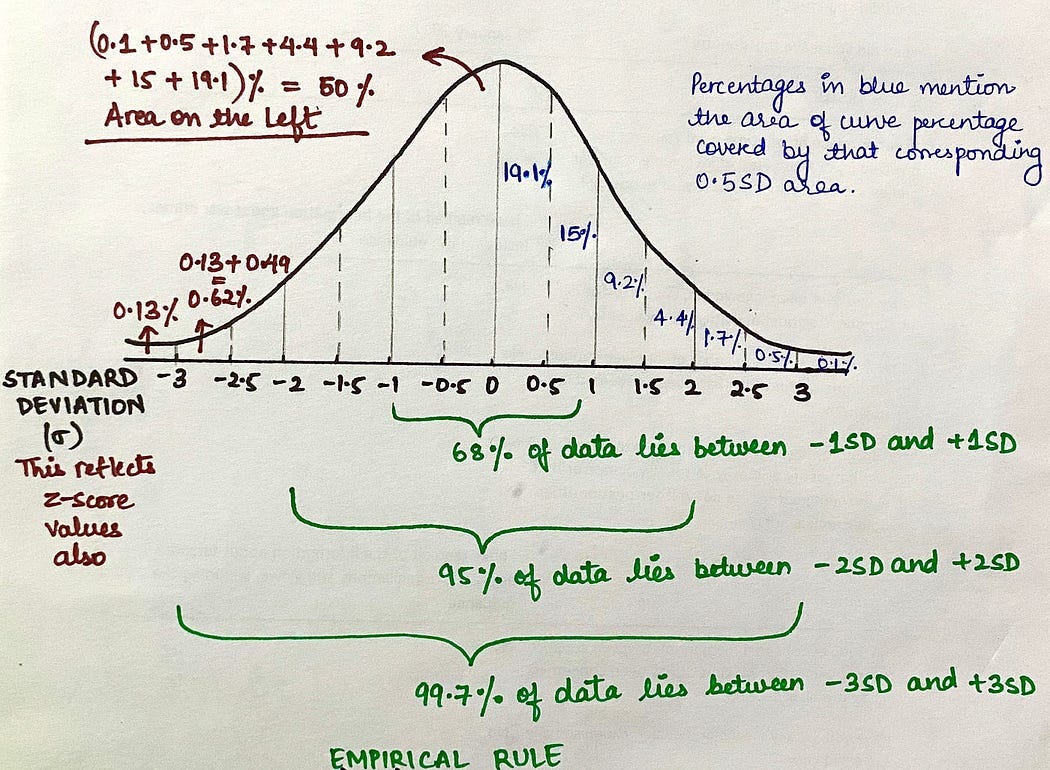 (0.1 +0.5 +1.7 +4.4 +9.2
+ 15 + 19.1)% = 50%
Area on the left
Percentages in blue mention
the area of curve percentage
covered by that corresponding
0.5SD area.
19.1%
15%
9.2%
4.4%
1.7%
0.5%
0.1%
0.13 + 0.49
=
0.62%
0.13%
STANDARD -3 -2.5 -2 -1.5 -1 -0.5 0 0.5 1 1.5 2 2.5 3
DEVIATION
(σ)
This reflects
z-score
values
also
68% of data lies between -1SD and +1SD
95% of data lies between -2SD and +2SD
99.7% of data lies between -3SD and +3SD
EMPIRICAL RULE